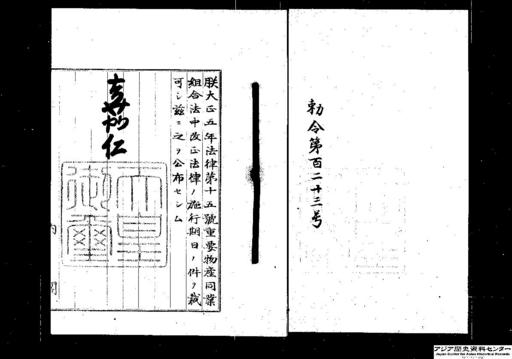 勅令第百二十三号
朕大正五年法律第十五號重要物産同業
組合法中改正法律ノ施行期日ノ件ヲ裁
可シ茲ニ之ヲ公布セシム
嘉仁
天皇
御璽
内
閣
アジア歴史資料センター
Japan Center for Asian Historical Records